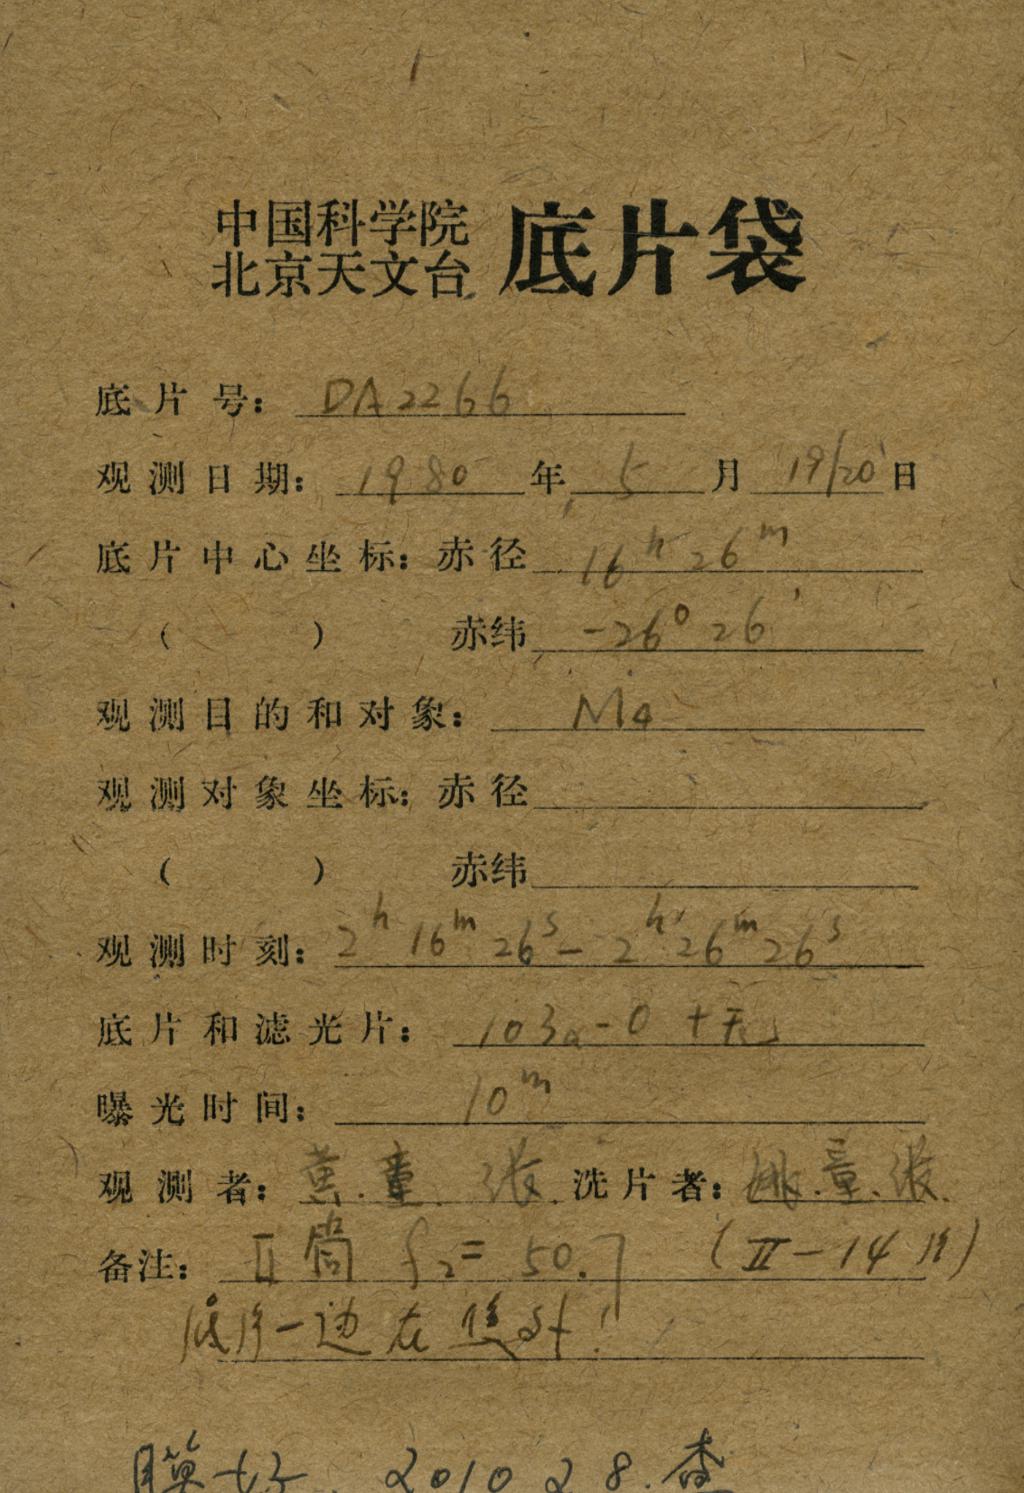 中国科学院
北京天文台 底片袋
底片号： DA2266
观测日期： 1980 年 5 月 19/20 日
底片中心坐标：赤径 16h 26m
（ ） 赤纬 -26° 26'
观测目的和对象： M4
观测对象坐标：赤径
（ ） 赤纬
观测时刻： 2h 16m 26s - 2h 26m 26s
底片和滤光片： 103a-O + 无
曝光时间： 10m
观测者： 黄. 章. 张. 洗片者： 姚. 章. 张.
备注： II筒 f2= 50.7 (II-14片)
底片一边在焦外!
膜好. 2010 2 8. 查